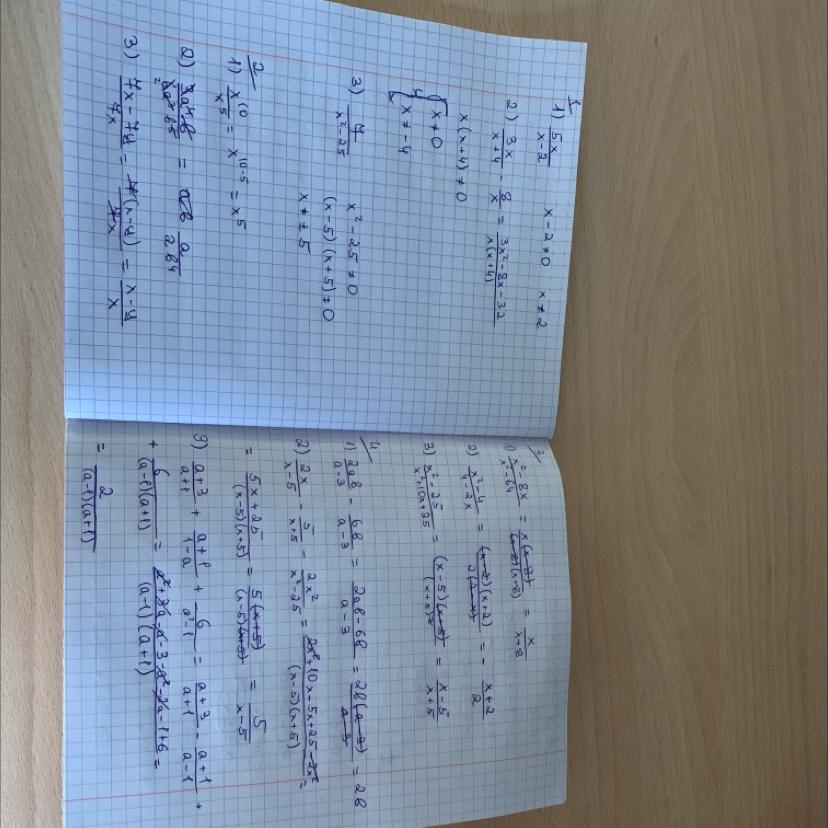 1
1) 5x/(x-2)    x-2≠0    x≠2
2) 3x/(x+4) - 8/x = (3x²-8x-32)/(x(x+4))
x(x+4)≠0
{ x≠0
x≠-4
3) 4/(x²-25)    x²-25≠0
(x-5)(x+5)≠0
x≠±5
2
1) x¹⁰/x⁵ = x¹⁰⁻⁵ = x⁵
3) (7x-7y)/7x = 7(x-y)/7x = (x-y)/x
3
1) (x²-8x)/(x²-64) = x(x-8)/((x-8)(x+8)) = x/(x+8)
2) (x²-4)/(4-2x) = (x-2)(x+2)/(2(2-x)) = -(x+2)/2
3) (x²-25)/(x²+10x+25) = (x-5)(x+5)/(x+5)² = (x-5)/(x+5)
4
1) 2ab/(a-3) - 6b/(a-3) = (2ab-6b)/(a-3) = 2b(a-3)/(a-3) = 2b
2) 2x/(x-5) - 5/(x+5) - 2x²/(x²-25) = (2x²+10x-5x+25-2x²)/((x-5)(x+5)) =
= (5x+25)/((x-5)(x+5)) = 5(x+5)/((x-5)(x+5)) = 5/(x-5)
3) (a+3)/(a+1) + (a+1)/(1-a) + 6/(a²-1) = (a+3)/(a+1) - (a+1)/(a-1) +
+ 6/((a-1)(a+1)) = (a²+3a-a-3-a²-2a-1+6)/((a-1)(a+1)) =
= 2/((a-1)(a+1))